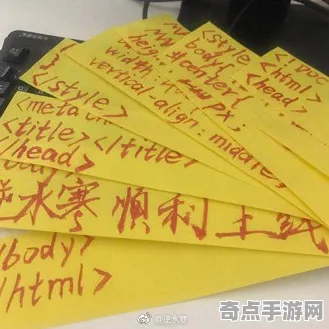 <!DOC
<html>
<head>
<style
body{
#canter{
heig
width: px;
vertical-align: middle;
</style>
<meta
<title></title>
</head>
逆水寒 順利上线
/body>
/html>
@逆水寒
奇点手游网